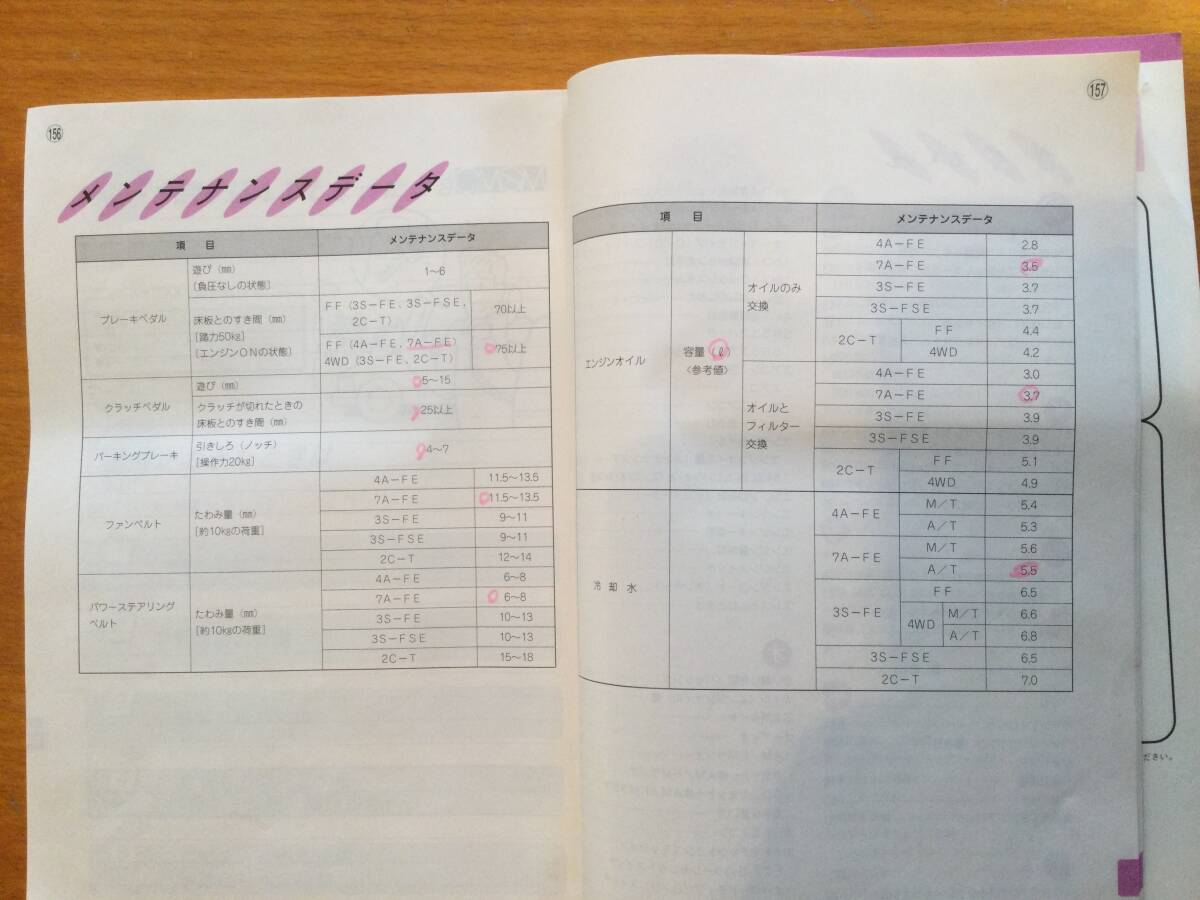 156
メンテナンスデータ
項 目 メンテナンスデータ
ブレーキペダル
遊び（㎜）
[負圧なしの状態]
1～6
床板とのすき間（㎜）
[踏力50㎏]
[エンジンONの状態]
FF（3S－FE、3S－FSE、
2C－T）
70以上
FF（4A－FE、7A－FE）
4WD（3S－FE、2C－T）
75以上
クラッチペダル
遊び（㎜）
5～15
クラッチが切れたときの
床板とのすき間（㎜）
25以上
パーキングブレーキ
引きしろ（ノッチ）
[操作力20㎏]
4～7
ファンベルト
たわみ量（㎜）
[約10㎏の荷重]
4A－FE 11.5～13.5
7A－FE 11.5～13.5
3S－FE 9～11
3S－FSE 9～11
2C－T 12～14
パワーステアリング
ベルト
たわみ量（㎜）
[約10㎏の荷重]
4A－FE 6～8
7A－FE 6～8
3S－FE 10～13
3S－FSE 10～13
2C－T 15～18
157
項 目 メンテナンスデータ
エンジンオイル
容量（ℓ）
〈参考値〉
オイルのみ
交換
4A－FE 2.8
7A－FE 3.5
3S－FE 3.7
3S－FSE 3.7
2C－T FF 4.4
4WD 4.2
オイルと
フィルター
交換
4A－FE 3.0
7A－FE 3.7
3S－FE 3.9
3S－FSE 3.9
2C－T FF 5.1
4WD 4.9
冷却水
4A－FE M／T 5.4
A／T 5.3
7A－FE M／T 5.6
A／T 5.5
3S－FE FF 6.5
4WD M／T 6.6
A／T 6.8
3S－FSE 6.5
2C－T 7.0
ださい。